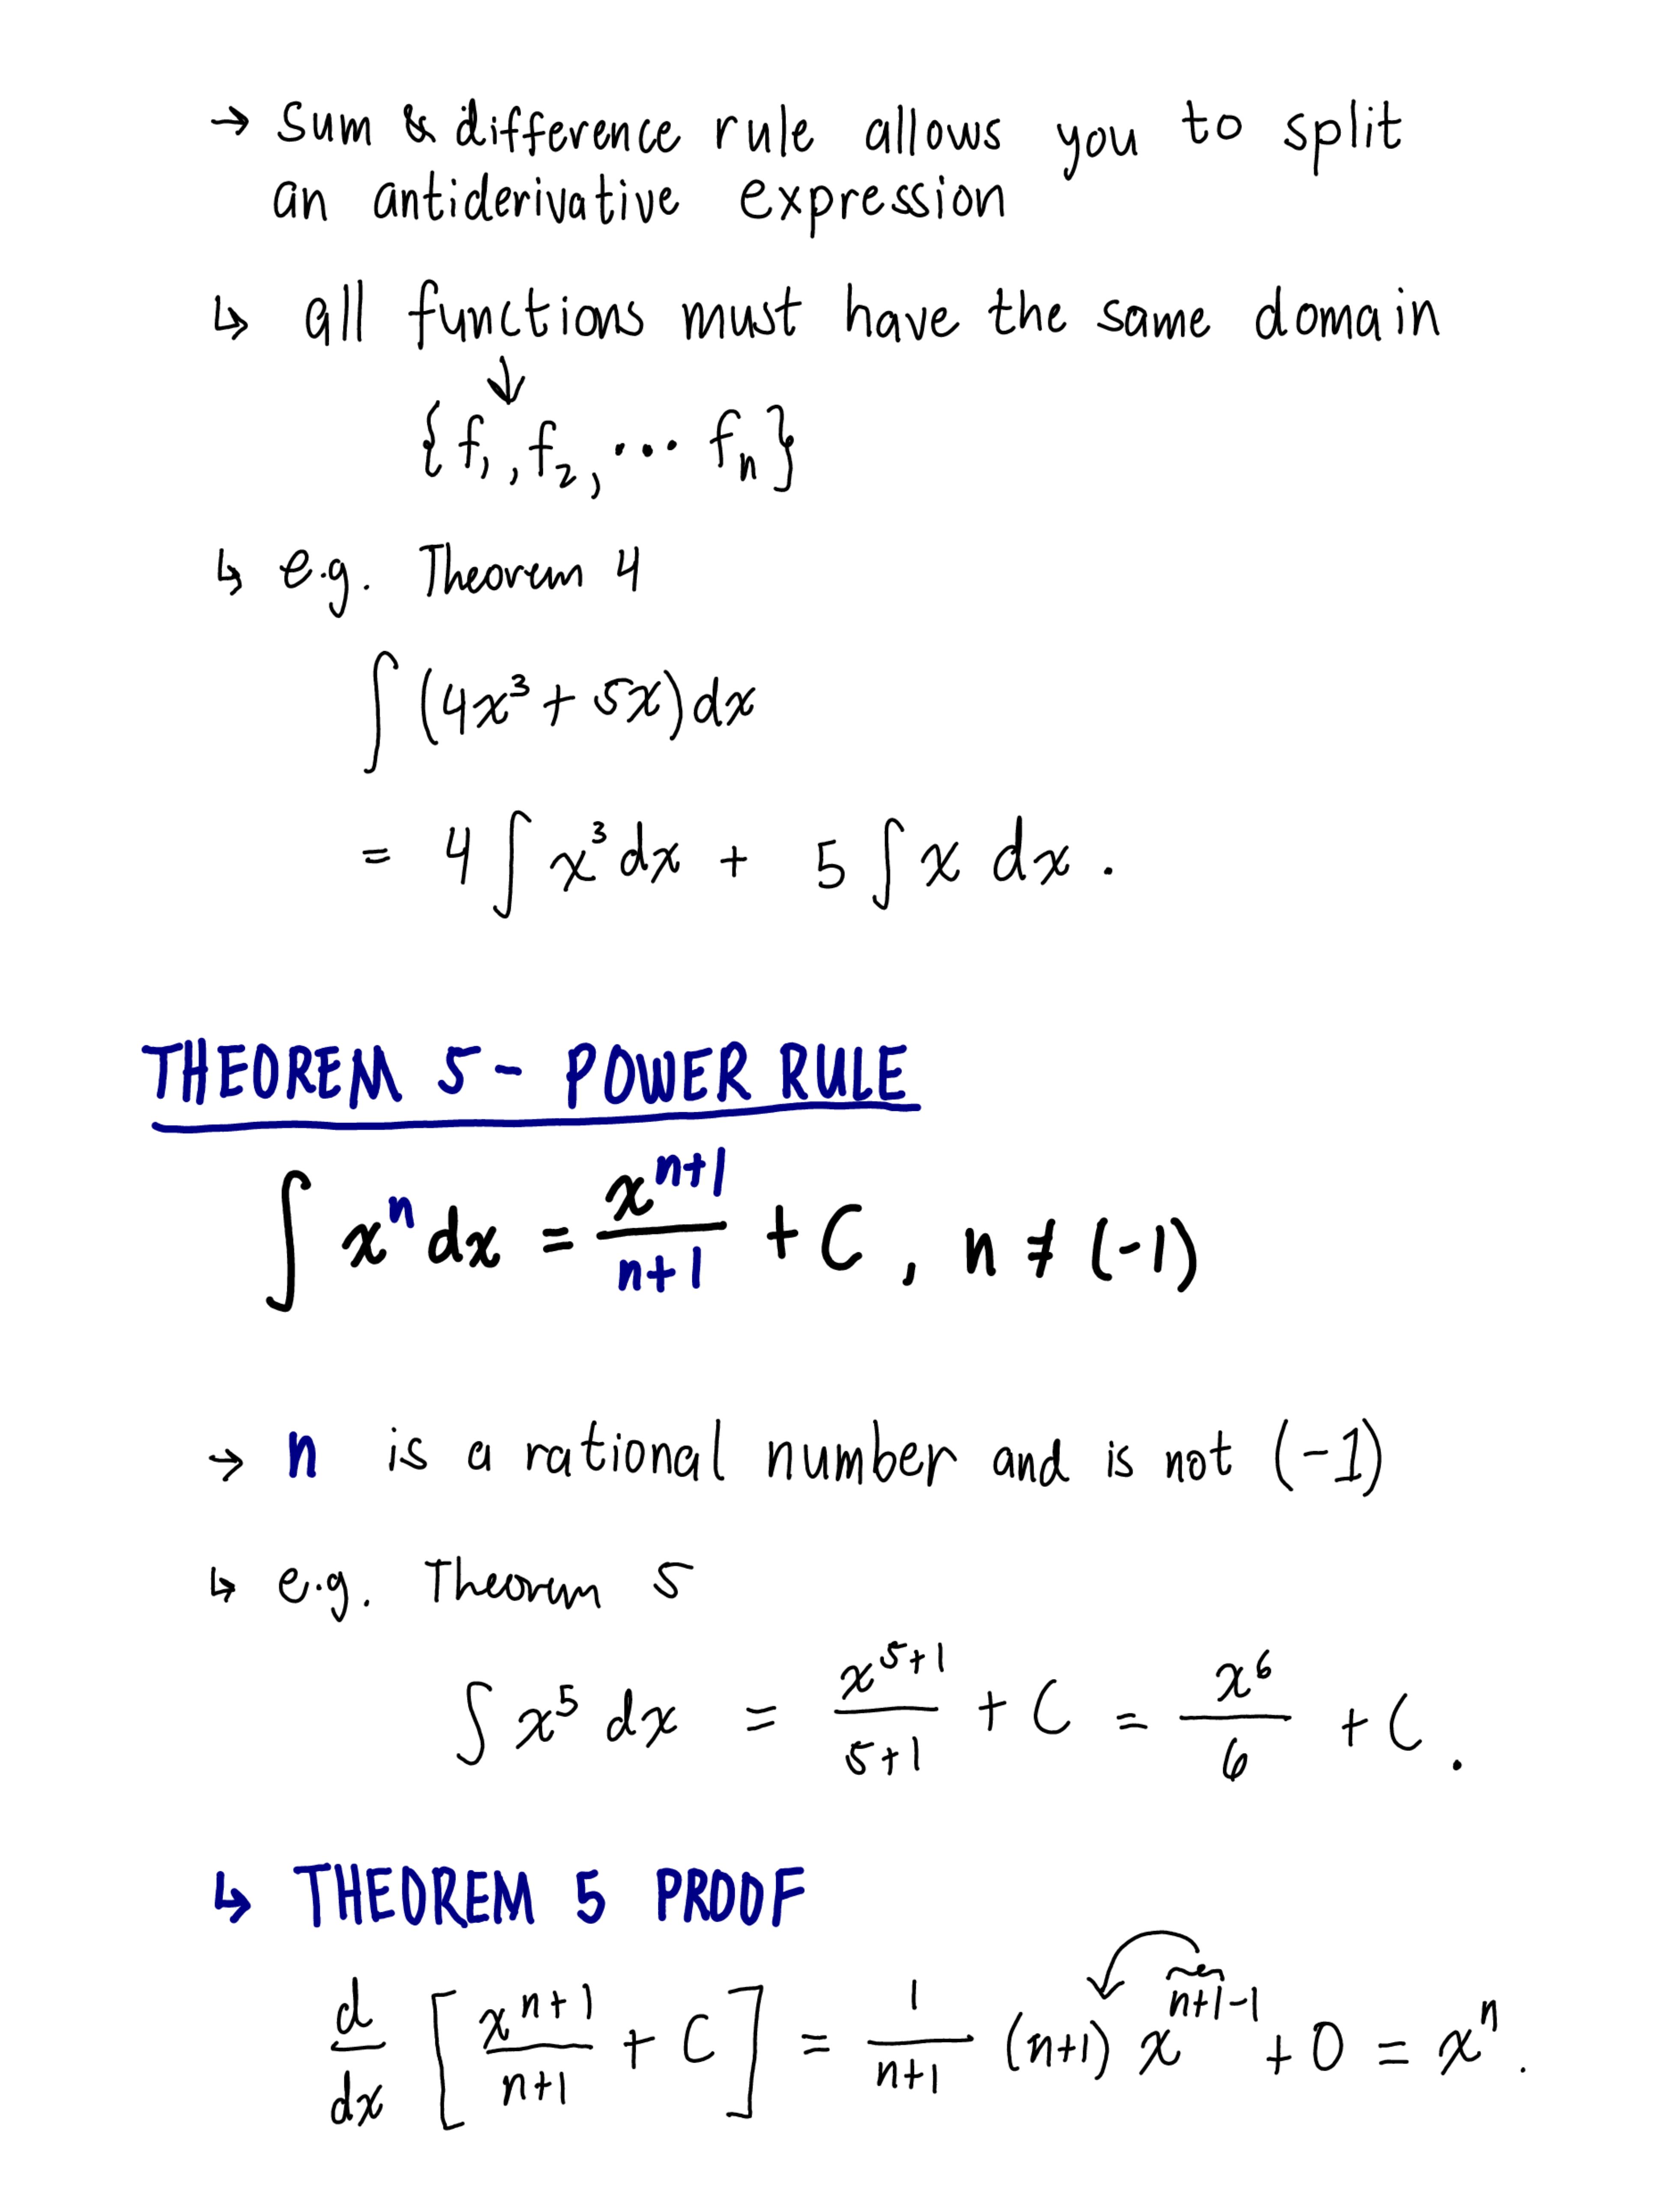 → Sum & difference rule allows you to split
an antiderivative expression
↳ all functions must have the same domain
↓
{f₁, f₂, ... fₙ}
↳ e.g. Theorem 4
∫ (4x³ + 5x) dx
= 4 ∫ x³ dx + 5 ∫ x dx .
THEOREM 5 - POWER RULE
∫ xⁿ dx = x^(n+1) / (n+1) + C , n ≠ (-1)
→ n is a rational number and is not (-1)
↳ e.g. Theorem 5
∫ x⁵ dx = x^(5+1) / (5+1) + C = x⁶ / 6 + C .
↳ THEOREM 5 PROOF
d/dx [ x^(n+1) / (n+1) + C ] = 1/(n+1) (n+1) x^(n+1-1) + 0 = xⁿ .